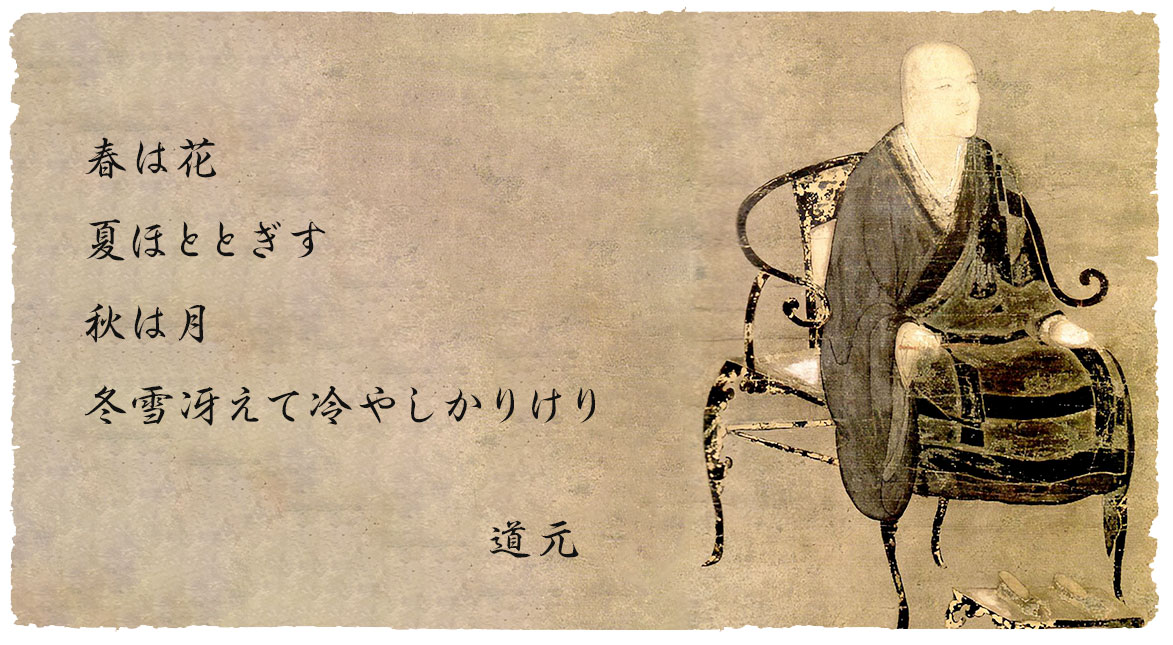 春は花
夏ほととぎす
秋は月
冬雪冴えて冷やしかりけり
道元